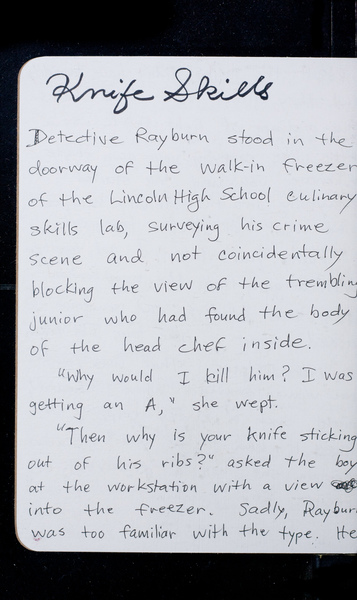 Knife Skills
Detective Rayburn stood in the
doorway of the walk-in freezer
of the Lincoln High School culinary
skills lab, surveying his crime
scene and not coincidentally
blocking the view of the trembling
junior who had found the body
of the head chef inside.
"Why would I kill him? I was
getting an A," she wept.
"Then why is your knife sticking
out of his ribs?" asked the boy
at the workstation with a view
into the freezer. Sadly, Raybur
was too familiar with the type. He